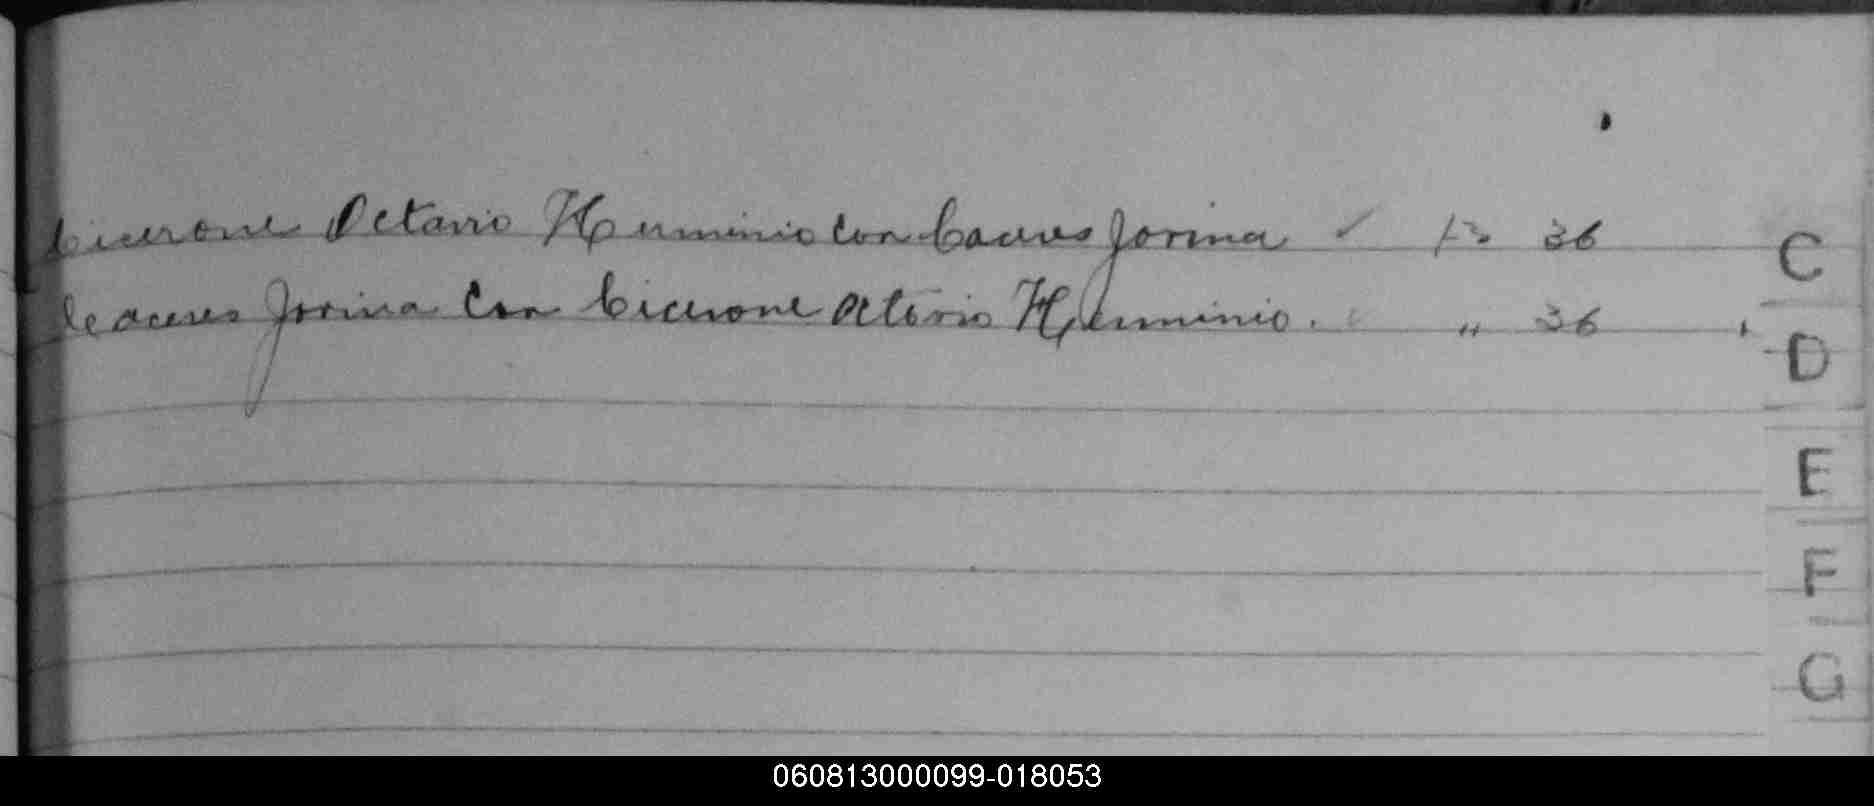 Cicerone Octavio Herminio con Caceres Jovina ✓ 36
Caceres Jovina con Cicerone Octavio Herminio. " 36
C
D
E
F
G
060813000099-018053